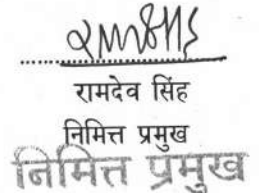 रामदेव सिंह
निमित्त प्रमुख
निमित्त प्रमुख